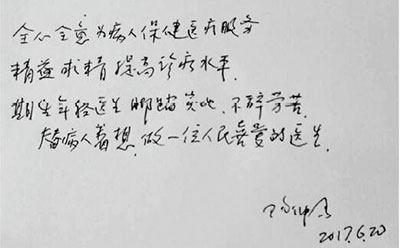 全心全意为病人保健医疗服务
精益求精提高诊疗水平.
期望年轻医生脚踏实地、不辞劳苦.
替病人着想.做一位人民喜爱的医生.
2017.6.20